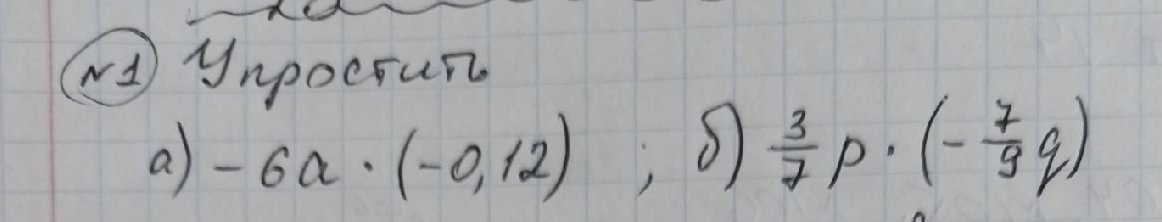 №1 Упростить
а) -6a · (-0,12) ; б) 3/7 p · (- 7/9 q)